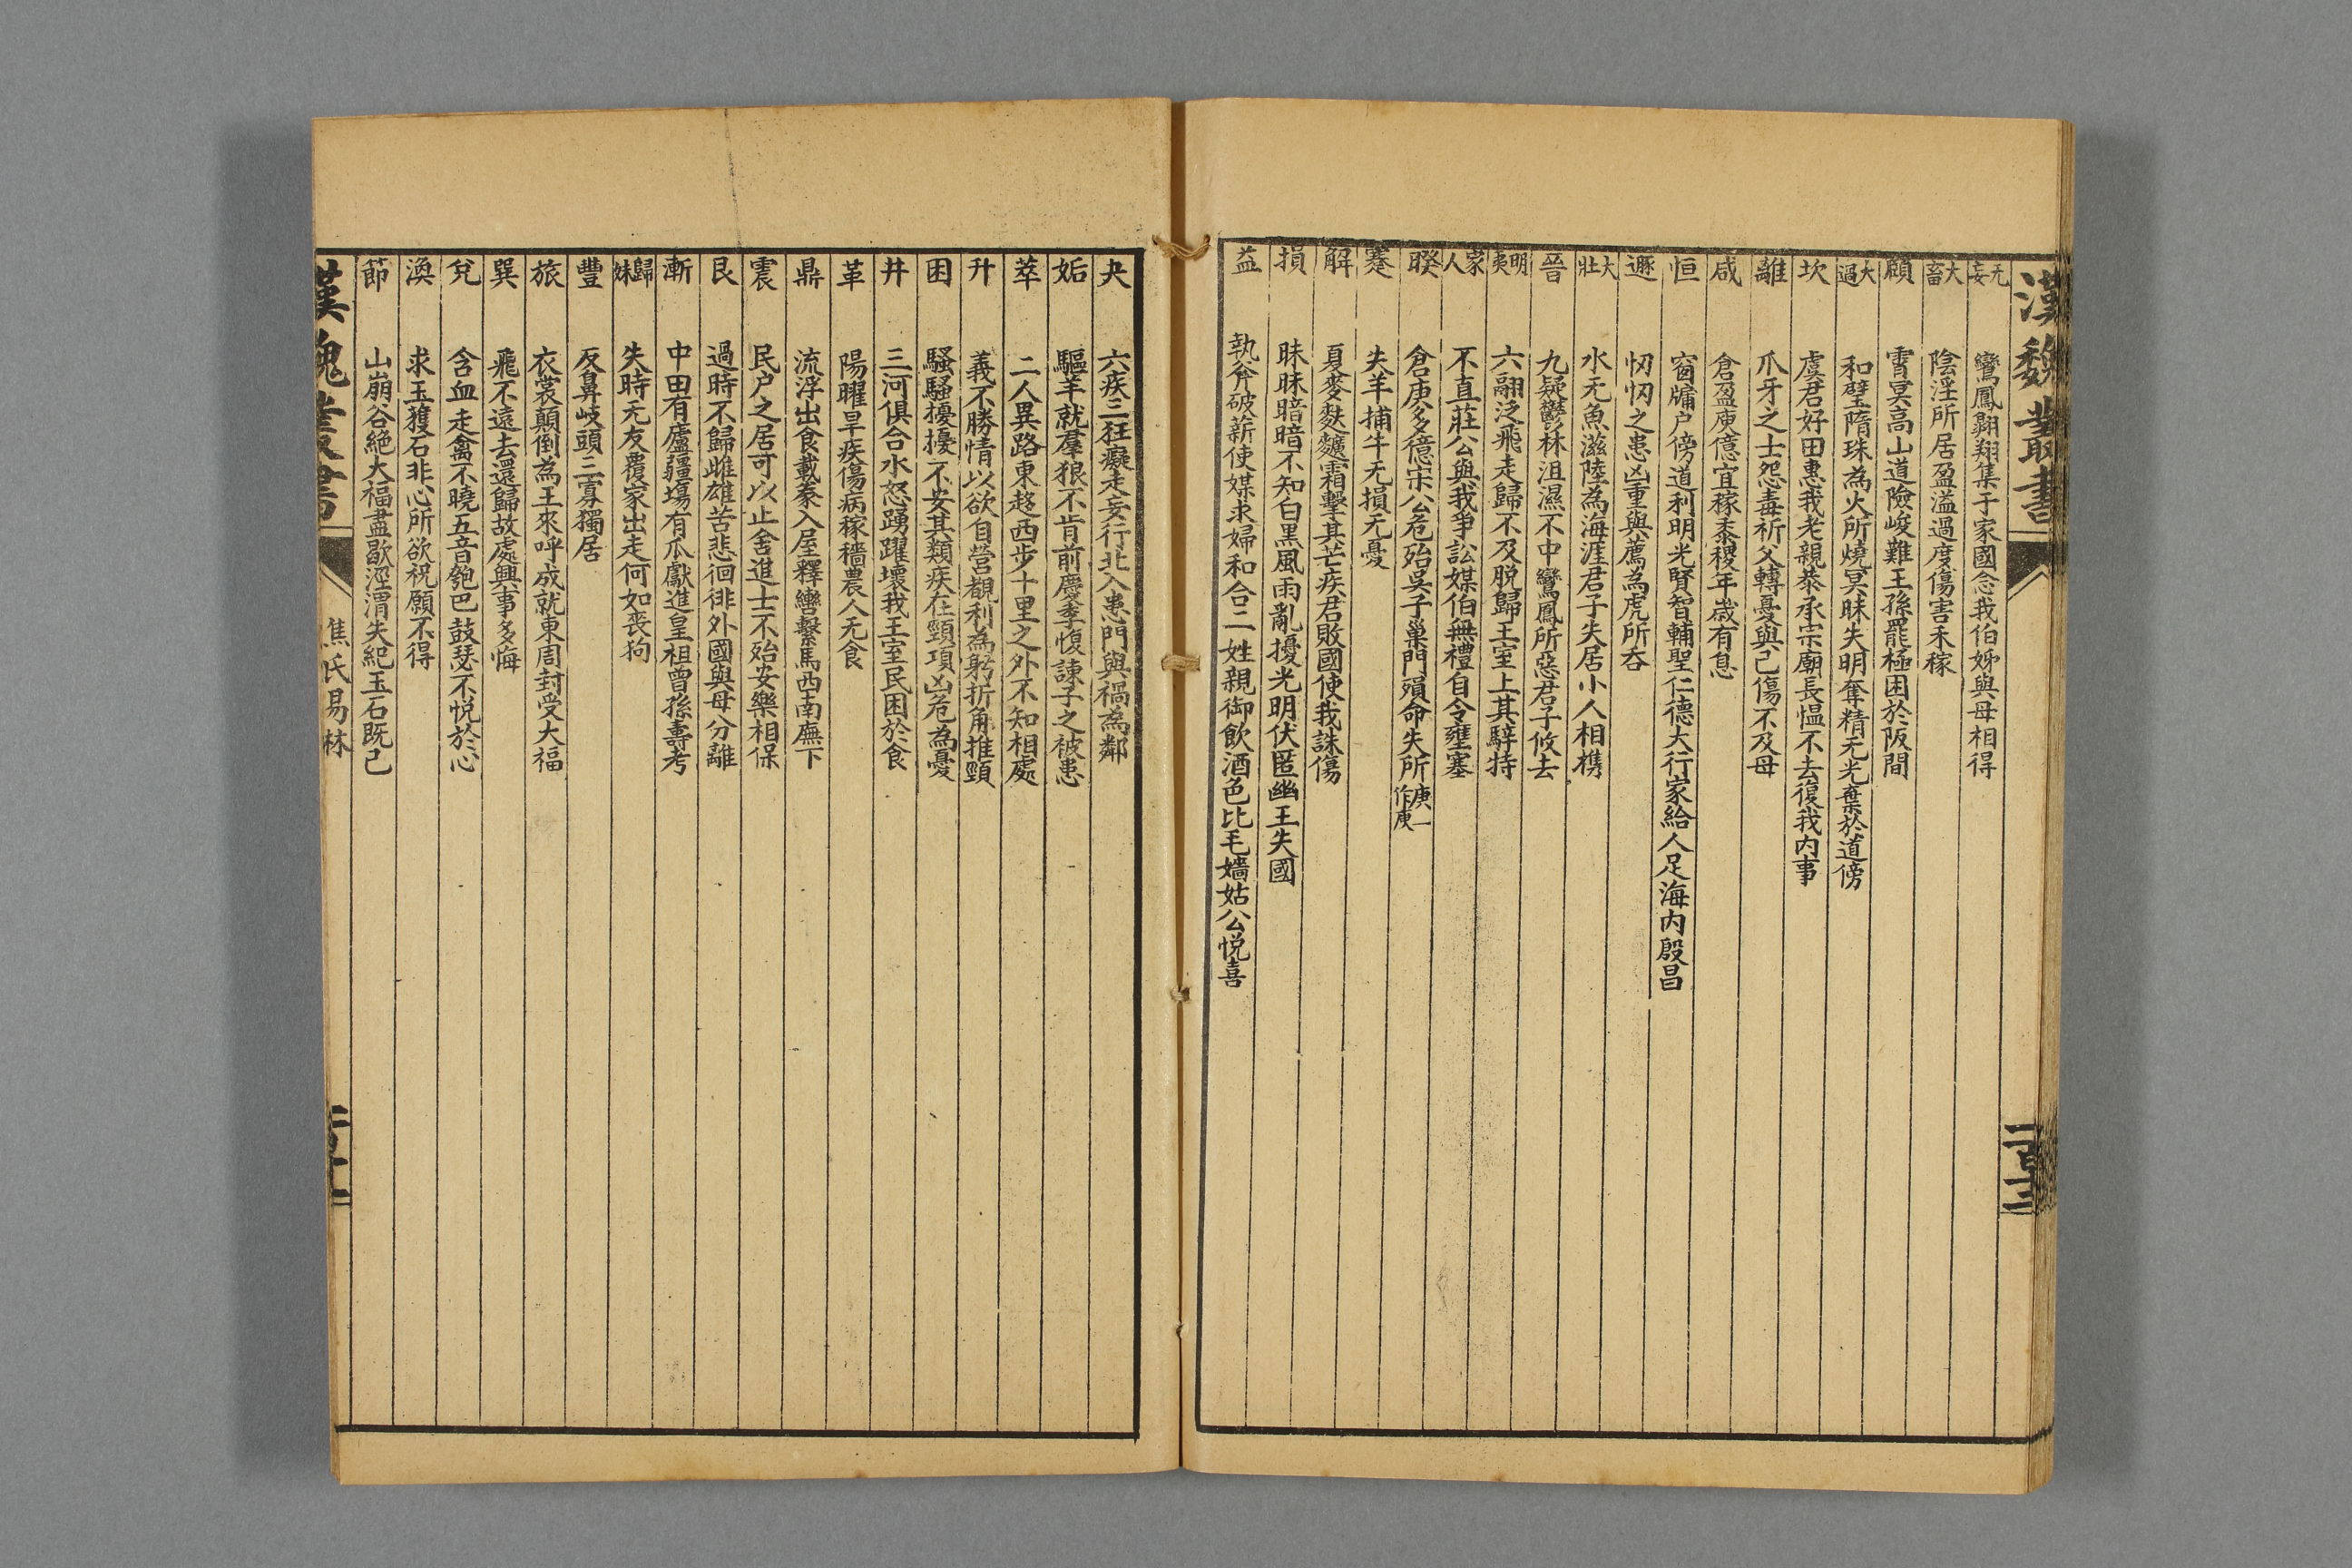 漢魏叢書
无妄 鸞鳳翺翔集于家國念我伯姊與母相得
大畜 陰淫所居盈溢過度傷害禾稼
頤 霄冥高山道險峻難王孫罷極困於阪間
大過 和璧隋珠為火所燒冥昧失明奪精无光棄於道傍
坎 虞君好田惠我老親恭承宗廟長慍不去復我内事
離 爪牙之士怨毒祈父轉憂與己傷不及母
咸 倉盈庾億宜稼黍稷年歲有息
恒 窗牖户傍道利明光賢智輔聖仁德大行家給人足海内殷昌
遯 忉忉之患凶重與薦為虎所吞
大壯 水无魚滋陸為海涯君子失居小人相㩗
晉 九疑鬱林沮濕不中鸞鳳所惡君子攸去
明夷 六翮泛飛走歸不及脱歸王室上其騂特
家人 不直莊公與我爭訟媒伯無禮自令壅塞
睽 倉庚多億宋公危殆吳子巢門殞命失所 庚一作庾
蹇 失羊捕牛无損无憂
解 夏麥麩䵃霜擊其芒疾君敗國使我誅傷
損 昧昧暗暗不知白黑風雨亂擾光明伏匿幽王失國
益 執斧破薪使媒求婦和合二姓親御飲酒色比毛嬙姑公悦喜
夬 六疾三狂癡走妄行北入患門與禍為鄰
姤 驅羊就羣狼不肯前慶季愎諫子之被患
萃 二人異路東趨西步十里之外不知相處
升 義不勝情以欲自營覩利為躬折角推頸
困 騷騷擾擾不安其類疾在頸項凶危為憂
井 三河俱合水怒踴躍壞我王室民困於食
革 陽曜旱疾傷病稼穡農人无食
鼎 流浮出食載豢入屋釋轡繫馬西南廡下
震 民户之居可以止舍進士不殆安樂相保
艮 過時不歸雌雄苦悲徊徘外國與母分離
漸 中田有廬疆場有瓜獻進皇祖曾孫壽考
歸妹 失時无友覆家出走何如喪狗
豐 反鼻岐頭三寡獨居
旅 衣裳顛倒為王來呼成就東周封受大福
巽 飛不遠去還歸故處興事多悔
兌 含血走禽不曉五音匏巴鼓瑟不悦於心
渙 求玉獲石非心所欲祝願不得
節 山崩谷絶大福盡歇涇渭失紀玉石既已
漢魏叢書 焦氏易林